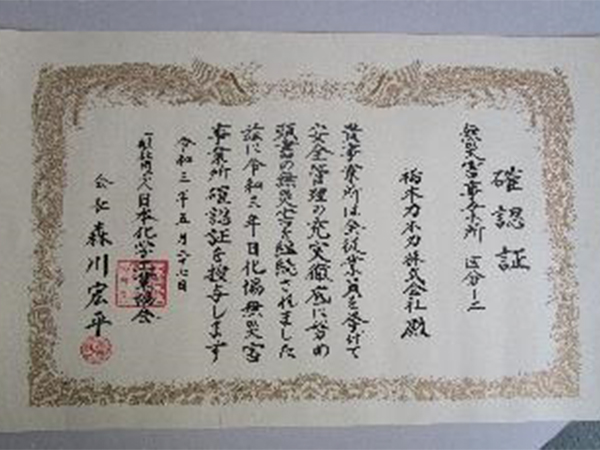 確認証
無災害事業所 区分-二
栃木カネカ株式会社 殿
貴事業所は全従業員を挙げて
安全管理の充実徹底に努め
顕著の無災害を継続されました
茲に令和三年日化協無災害
事業所確認証を授与します
令和三年五月二七日
一般社団法人日本化学工業協会
会長 森川宏平